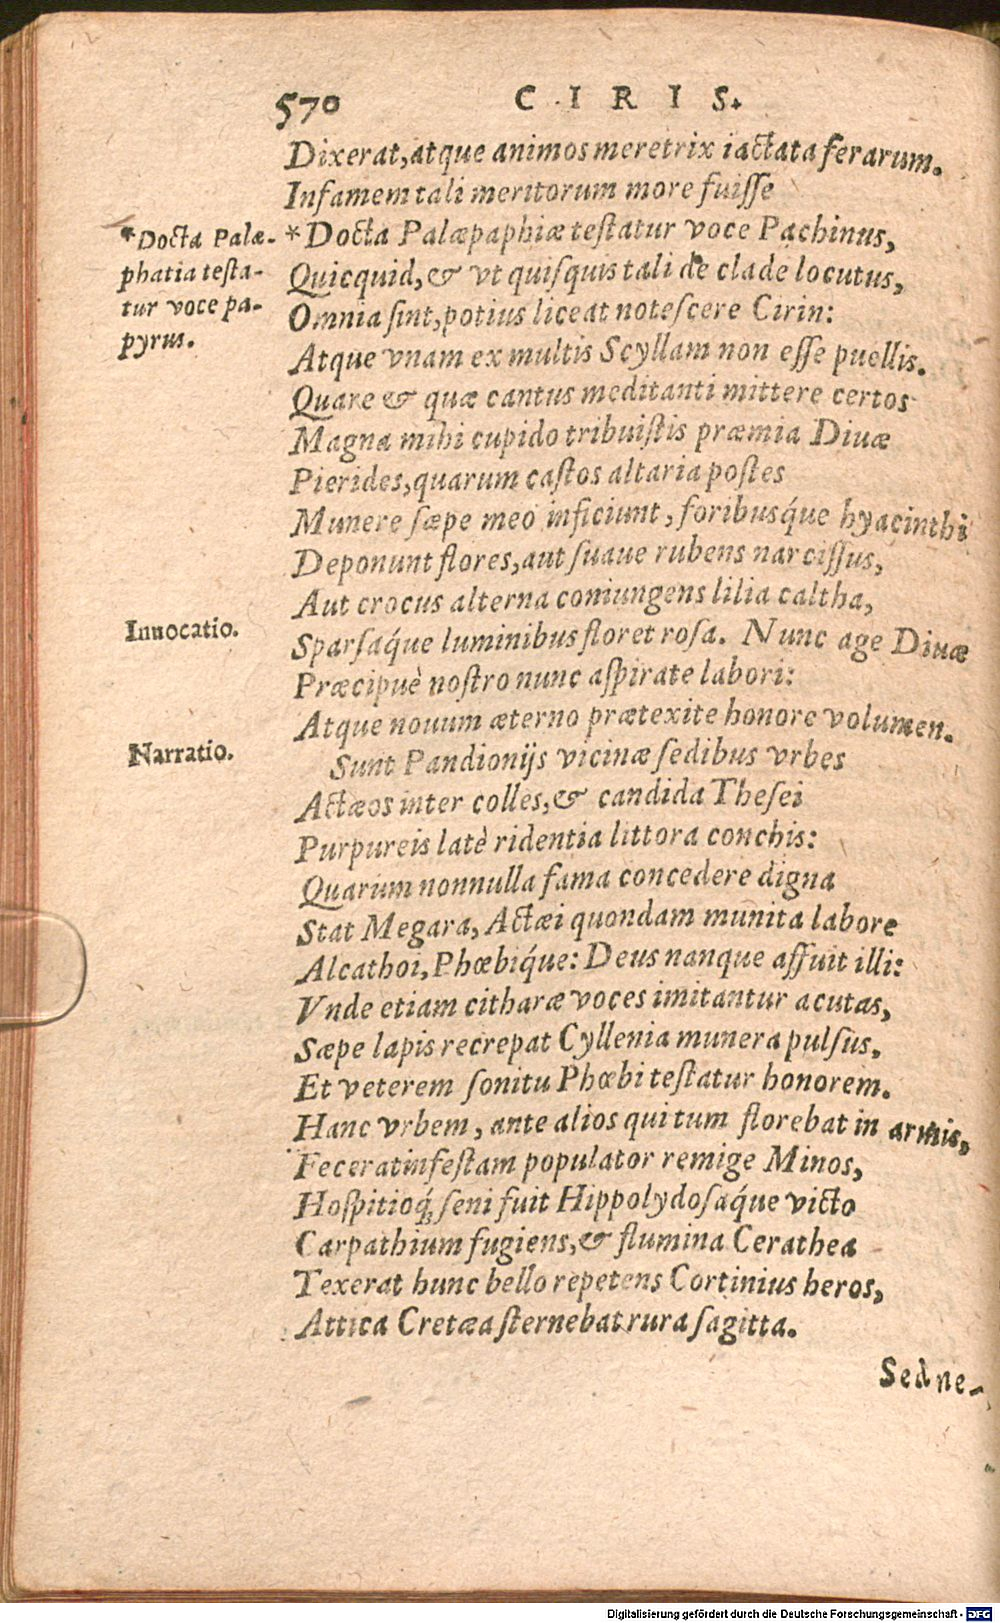 570 CIRIS.
Dixerat, atque animos meretrix iactata ferarum.
Infamem tali meritorum more fuiſſe
*Docta Palæpaphiæ teſtatur voce Pachinus,
Quicquid, & vt quiſquis tali de clade locutus,
Omnia ſint, potius liceat noteſcere Cirin:
Atque vnam ex multis Scyllam non eſſe puellis.
Quare & quæ cantus meditanti mittere certos
Magna mihi cupido tribuiſtis præmia Diuæ
Pierides, quarum caſtos altaria poſtes
Munere ſæpe meo inficiunt, foribusq́ue hyacinthi
Deponunt flores, aut ſuaue rubens narciſſus,
Aut crocus alterna coniungens lilia caltha,
Sparſaq́ue luminibus floret roſa. Nunc age Diuæ
Præcipuè noſtro nunc aſpirate labori:
Atque nouum æterno prætexite honore volumen.
Sunt Pandionijs vicinæ ſedibus vrbes
Actæos inter colles, & candida Theſei
Purpureis latè ridentia littora conchis:
Quarum nonnulla fama concedere digna
Stat Megara, Actæi quondam munita labore
Alcathoi, Phœbiq́ue: Deus nanque affuit illi:
Vnde etiam citharæ voces imitantur acutas,
Sæpe lapis recrepat Cyllenia munera pulſus,
Et veterem ſonitu Phœbi teſtatur honorem.
Hanc vrbem, ante alios qui tum florebat in armis,
Fecerat infeſtam populator remige Minos,
Hoſpitioq́; ſeni fuit Hippolydoſaq́ue victo
Carpathium fugiens, & flumina Cerathea
Texerat hunc bello repetens Cortinius heros,
Attica Cretæa ſternebat rura ſagitta.
Sed ne-
*Docta Palæ-
phatia teſta-
tur voce pa-
pyrus.
Inuocatio.
Narratio.
Digitalisierung gefördert durch die Deutsche Forschungsgemeinschaft - DFG